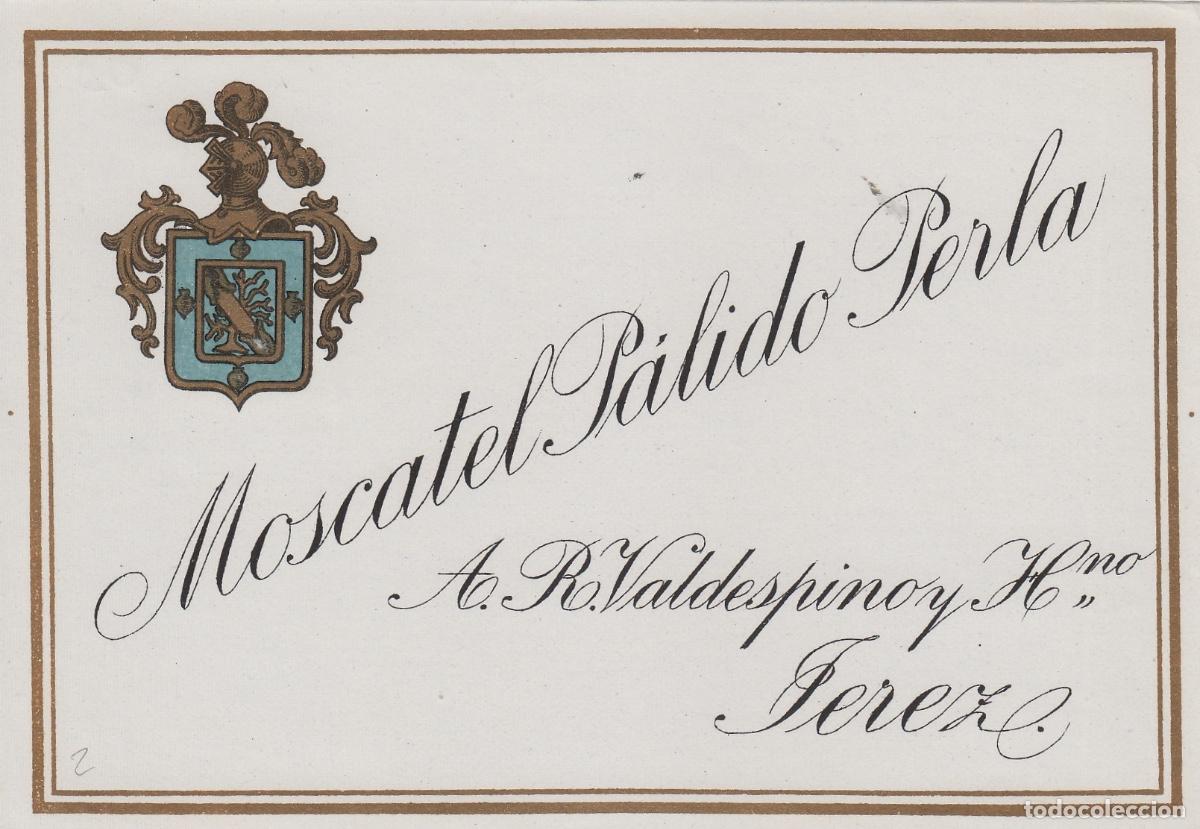 Moscatel Pálido Perla
A. R. Valdespino y Hno„
Jerez.
2
todocoleccion